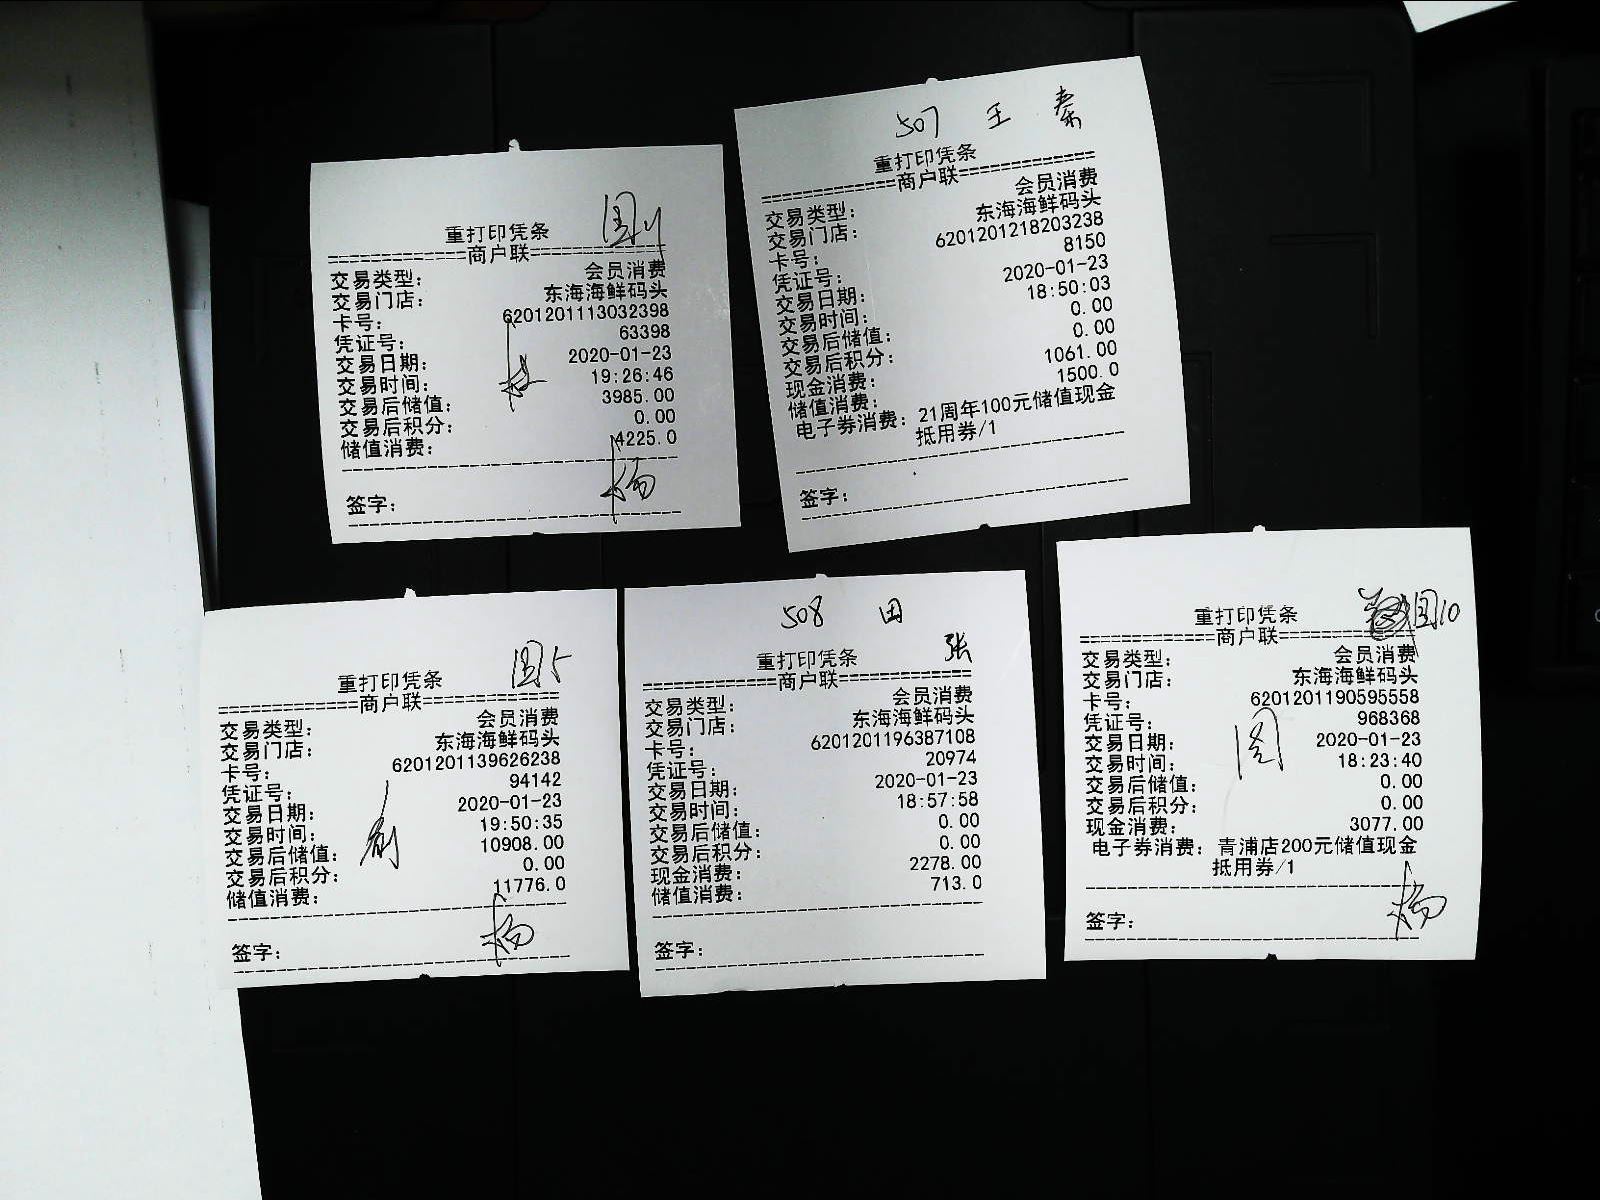 重打印凭条
=============商户联=============
交易类型： 会员消费
交易门店： 东海海鲜码头
卡号： 6201201113032398
凭证号： 63398
交易日期： 2020-01-23
交易时间： 19:26:46
交易后储值： 3985.00
交易后积分： 0.00
储值消费： 4225.0
签字： 杨
507 王 秦
重打印凭条
=============商户联=============
交易类型： 会员消费
交易门店： 东海海鲜码头
卡号： 6201201218203238
凭证号： 8150
交易日期： 2020-01-23
交易时间： 18:50:03
交易后储值： 0.00
交易后积分： 0.00
现金消费： 1061.00
储值消费： 1500.0
电子券消费： 21周年100元储值现金
抵用券/1
签字：
重打印凭条
=============商户联=============
交易类型： 会员消费
交易门店： 东海海鲜码头
卡号： 6201201139626238
凭证号： 94142
交易日期： 2020-01-23
交易时间： 19:50:35
交易后储值： 10908.00
交易后积分： 0.00
储值消费： 11776.0
签字： 杨
508 田
张
重打印凭条
=============商户联=============
交易类型： 会员消费
交易门店： 东海海鲜码头
卡号： 6201201196387108
凭证号： 20974
交易日期： 2020-01-23
交易时间： 18:57:58
交易后储值： 0.00
交易后积分： 0.00
现金消费： 2278.00
储值消费： 713.0
签字：
重打印凭条
=============商户联=============
交易类型： 会员消费
交易门店： 东海海鲜码头
卡号： 6201201190595558
凭证号： 968368
交易日期： 2020-01-23
交易时间： 18:23:40
交易后储值： 0.00
交易后积分： 0.00
现金消费： 3077.00
电子券消费： 青浦店200元储值现金
抵用券/1
签字： 杨